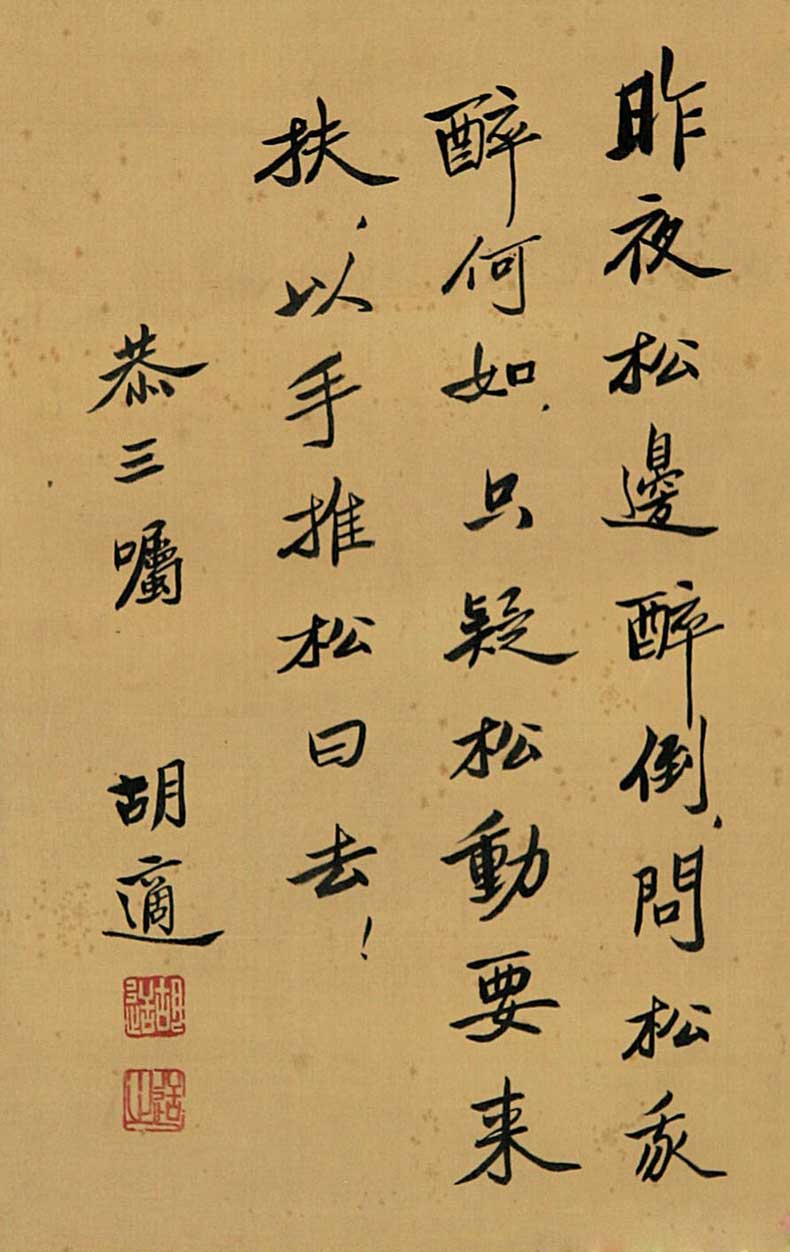 昨夜松邊醉倒，問松我
醉何如，只疑松動要来
扶，以手推松曰去！
恭三囑 胡適
胡適
適之